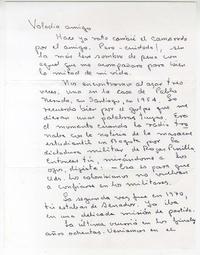 Volodia amigo
Hace ya rato cambié el camarada
por el amigo. Pero ¡cuidado!, se
la más leve sombra de pena con
aquel que me acompañara para
la mitad de mi vida.
Nos encontramos al azar tres
veces. Una en la casa de Pablo
Neruda, en Santiago, en 1954. Lo
recuerdo bien por el golpe que me
dieran unas palabras tuyas. Era
el momento cuando la radio
nabo con la noticia de la masacre
estudiantil en Bogotá por la
dictadura militar de Rojas Pinilla
Entonces tú, mirándome a los
ojos, dijiste: - Eso es para que
Uds. los colombianos no vuelvan
a confiarse en los militares.
La segunda vez fue en 1970,
tú estabas de Senador. Yo iba
en una delicada misión de partido.
La última ocurrió en los finales
años ochentas. Veníamos en el